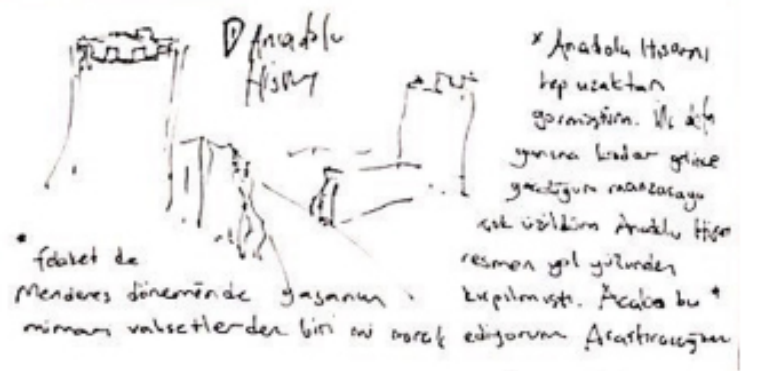 ① Anadolu
Hisarı
* Anadolu Hisarını
hep uzaktan
görmüştüm. İlk defa
yanına kadar gelince
gördüğüm manzaraya
çok üzüldüm Anadolu Hisarı
resmen yol yüzünden
kırpılmıştı. Acaba bu *
* felaket de
Menderes döneminde yaşanan
mimari vahşetlerden biri mi merak ediyorum Araştıracağım